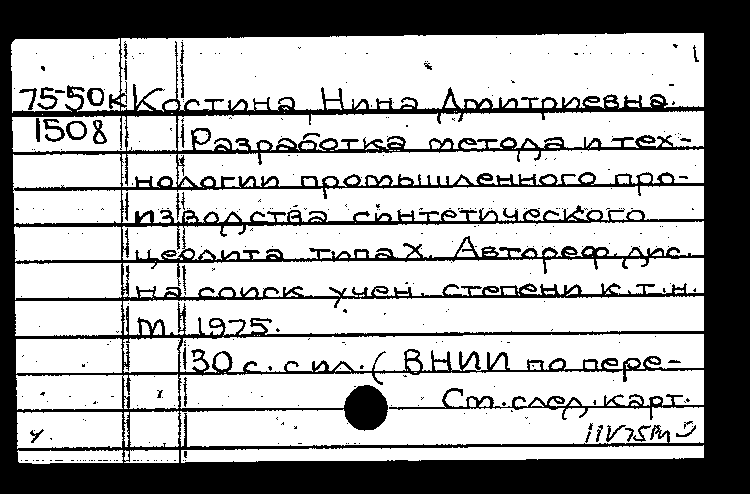 75-50к Костина, Нина Дмитриевна.
1508 Разработка метода и тех-
нологии промышленного про-
изводства синтетического
цеолита типа X. Автореф. дис.
на соиск учен. степени к.т.н.
М., 1975.
30 с. с ил. ( ВНИИ по пере-
См. след. карт.